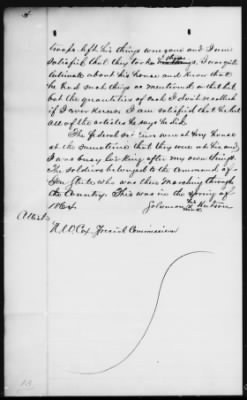 troops left his things were gone and I am
satisfied that they took them. I was quite
intimate about his house and know that
he had such things as mentioned in that list
but the quantities of each I don't recollect
if I ever knew. I am satisfied that he lost
all of the articles he says he did.
The federal soldiers were at my house
at the same time that they were at his and
I was busy looking after my own things.
The soldiers belonged to the command of
Gen who was then marching through
the Country. This was in the spring of
1864
his
Solomon X Hutson
mark
(Attest)
N. Cox Special Commissioner
13